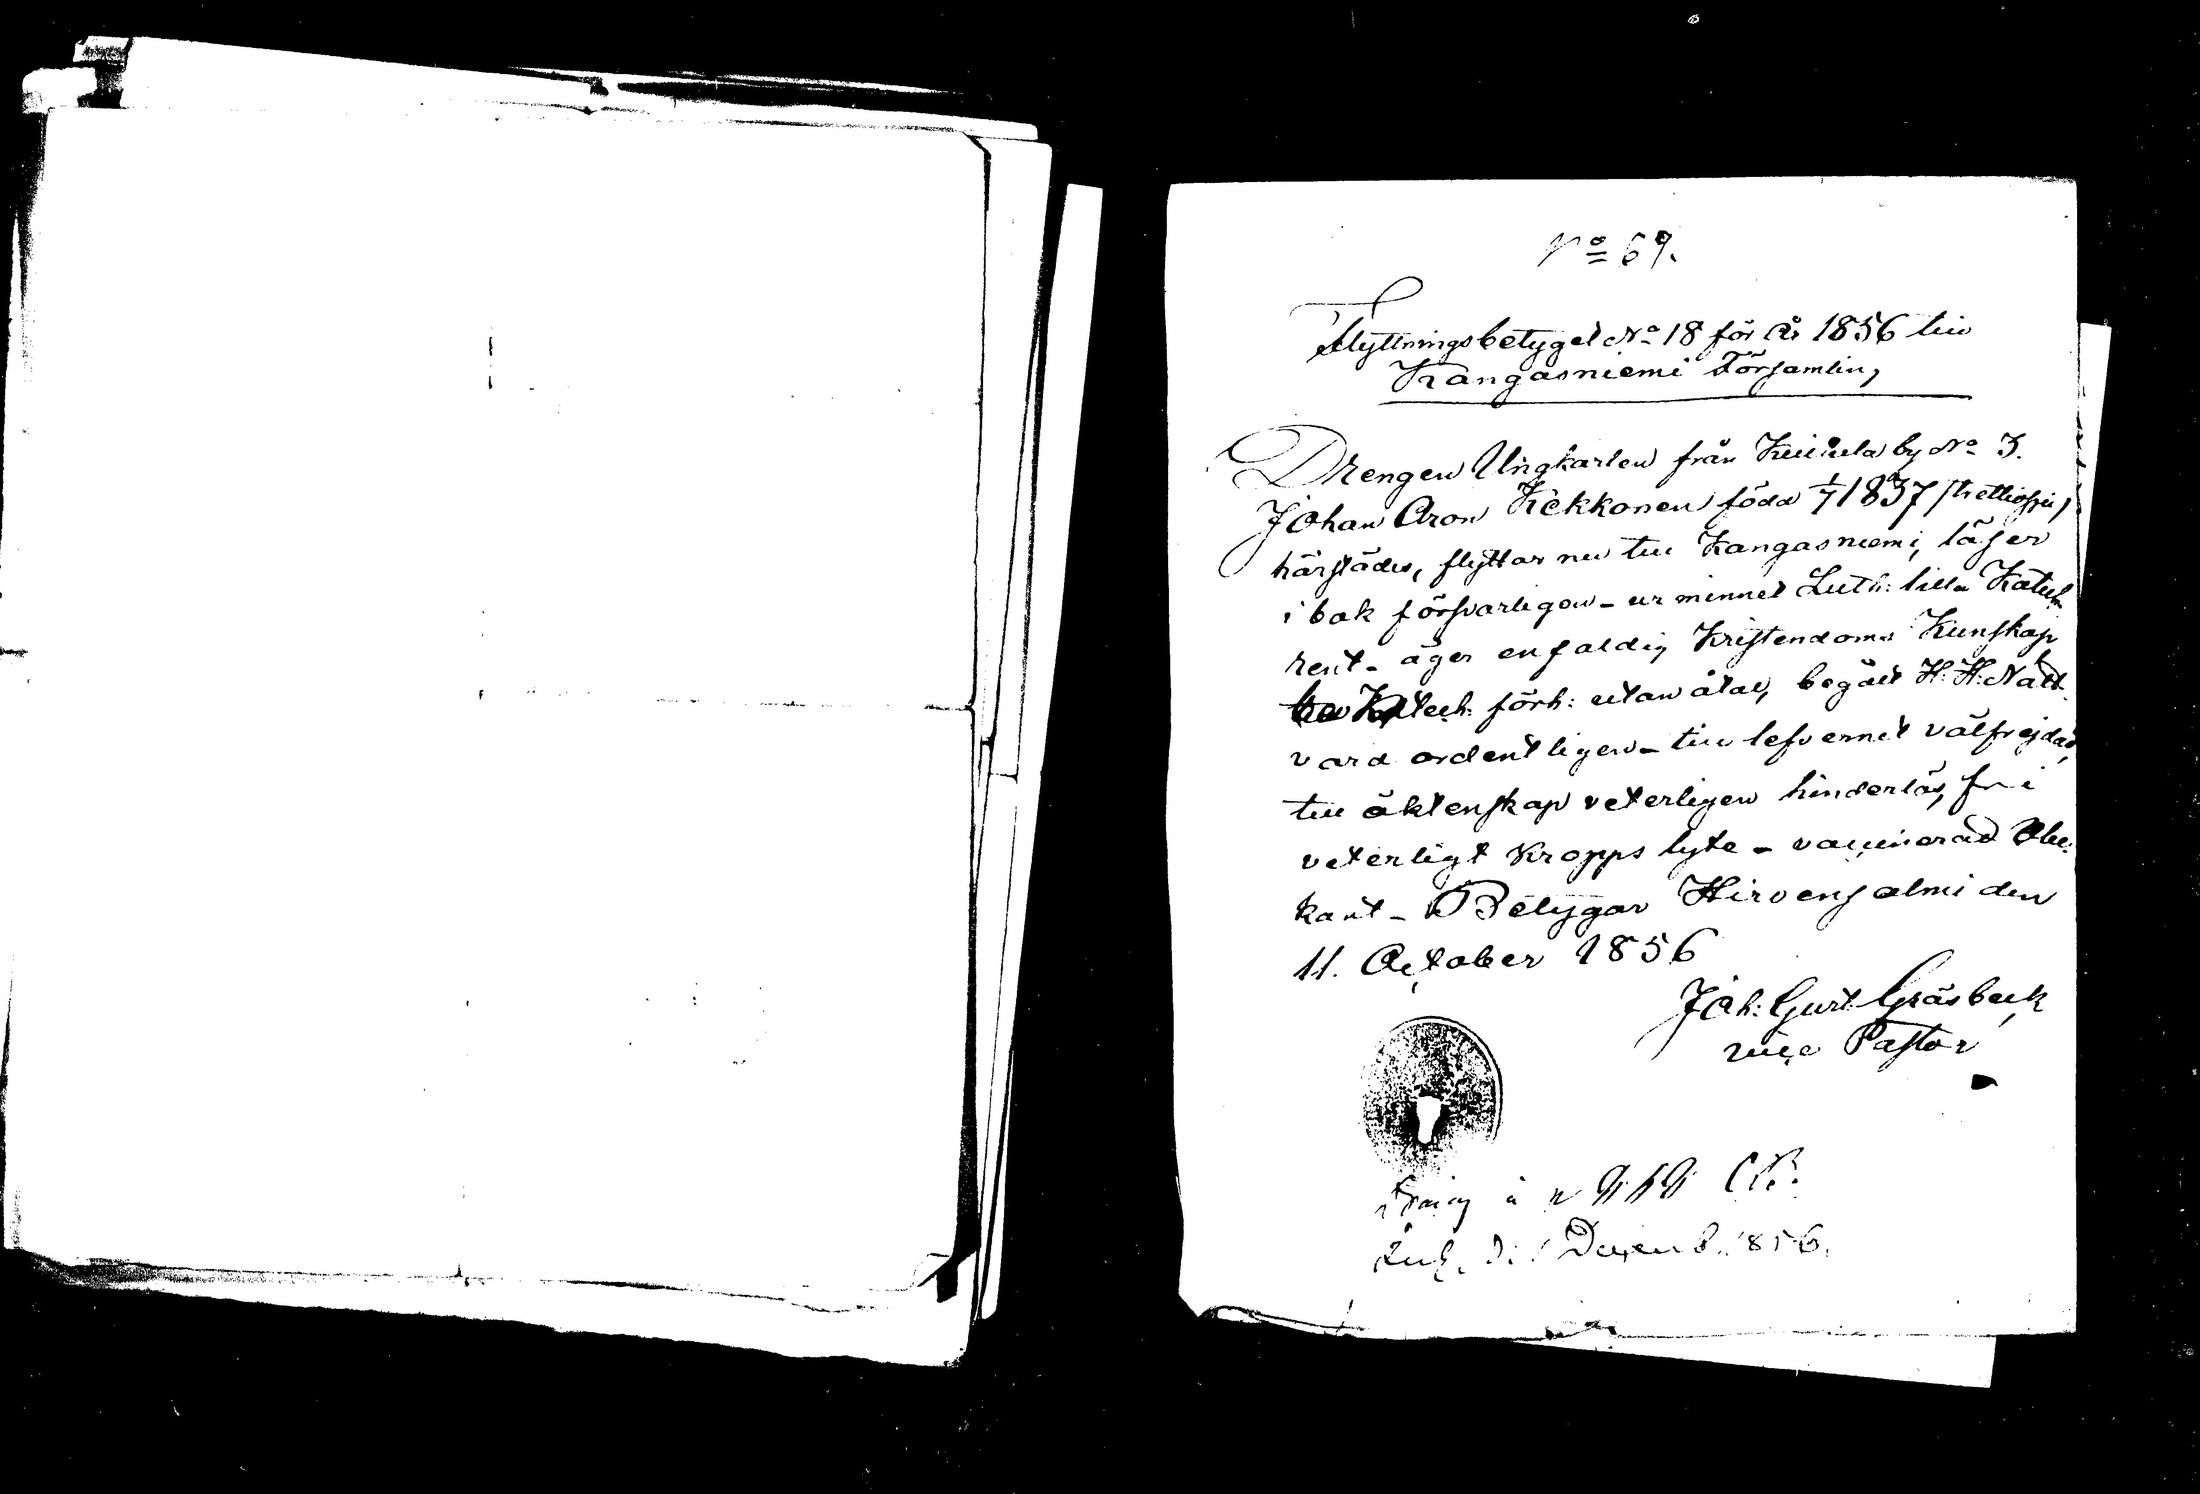 No 69.
Flyttningsbetyget No 18 för År 1856 till
Kangasniemi Församlin,
Drengen Ungkarlen från by No 3.
Johan Aron Kekkonen född 1/7 1837 /trettiosju/
härstädes, flyttar nu till Kangasniemi, läser
i bok försvarligen - ur minnet Luth: lilla Katech
rent - äger enfaldig Kristendoms Kunskap
Katech: förh: utan åtal, begått H. H. Natt-
vard ordentligen - till lefvernet välfrejdad,
till äktenskap veterligen hinderlös, fri
veterligt kropps lyte - vaccinerad Obe-
kant - Betygar Hirvensalmi den
11. October 1856
Joh: Gust: Gråsbeck
vice Pastor
Decemb. 1856.